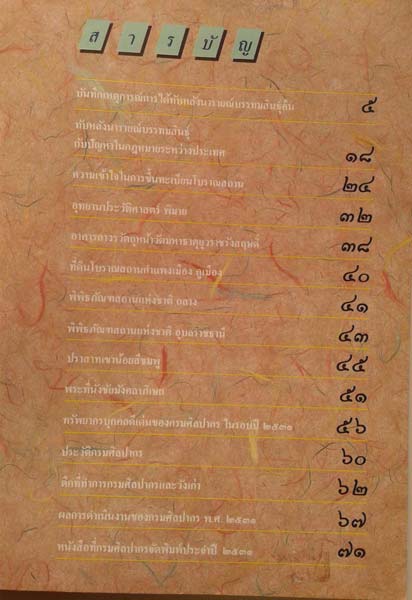 สารบัญ
บันทึกเหตุการณ์การได้ทับหลังนารายณ์บรรทมสินธุ์คืน ๕
ทับหลังนารายณ์บรรทมสินธุ์
กับปัญหาในกฎหมายระหว่างประเทศ ๑๘
ความเข้าใจในการขึ้นทะเบียนโบราณสถาน ๒๔
อุทยานประวัติศาสตร์ พิมาย ๓๒
๓๘
ที่ดินโบราณสถานกำแพงเมือง คูเมือง ๔๐
พิพิธภัณฑสถานแห่งชาติ ถลาง ๔๑
พิพิธภัณฑสถานแห่งชาติ อุบลราชธานี ๔๓
ปราสาทเขาน้อยสีชมพู ๔๕
พระที่นั่งชัยมังคลาภิเษก ๕๑
ทรัพยากรบุคคลดีเด่นของกรมศิลปากร ในรอบปี ๒๕๓๑ ๕๖
ประวัติกรมศิลปากร ๖๐
ตึกที่ทำการกรมศิลปากรและวังเก่า ๖๒
ผลการดำเนินงานของกรมศิลปากร พ.ศ. ๒๕๓๑ ๖๗
หนังสือที่กรมศิลปากรจัดพิมพ์ประจำปี ๒๕๓๑ ๗๑